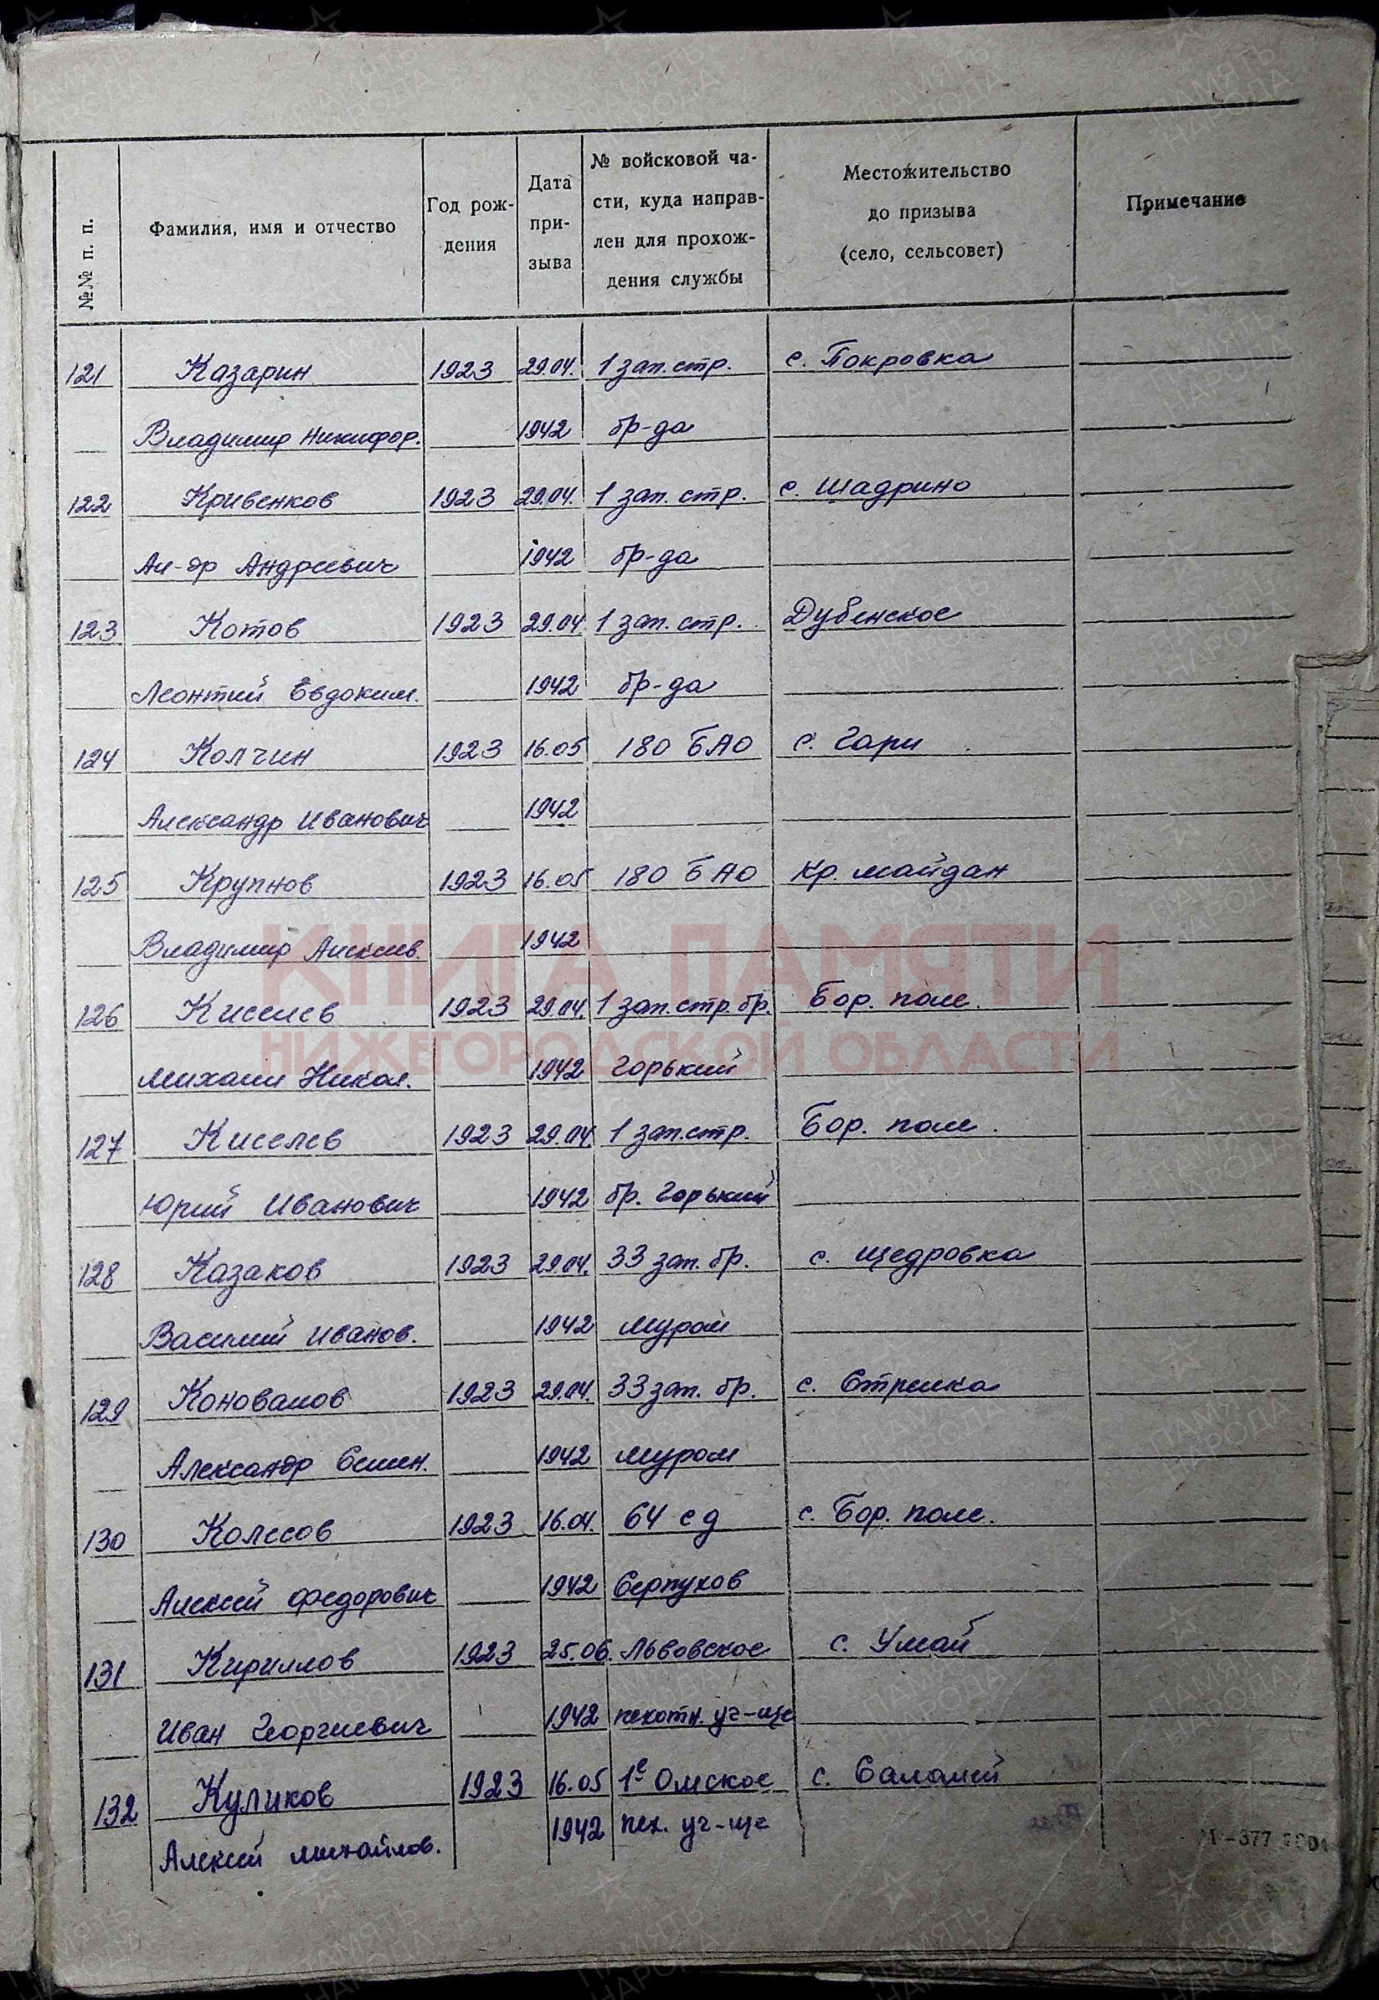 №№ п. п. Фамилия, имя и отчество Год рож- дения Дата при- зыва № войсковой ча- сти, куда направ- лен для прохож- дения службы Местожительство до призыва (село, сельсовет) Примечание
121 Казарин 1923 29.04. 1 зап. стр. с. Покровка
Владимир Никифор. 1942 бр-да
122 Кривенков 1923 29.04. 1 зап. стр. с. Шадрино
Ал-др Андреевич 1942 бр-да
123 Котов 1923 29.04 1 зап. стр. Дубенское
Леонтий Евдоким. 1942 бр-да
124 Колчин 1923 16.05 180 БАО с. Гари
Александр Иванович 1942
125 Крупнов 1923 16.05 180 БАО Кр. майдан
Владимир Алексеев. 1942
КНИГА ПАМЯТИ
126 Киселев 1923 29.04. 1 зап. стр. бр. Бор. поле.
НИЖЕГОРОДСКОЙ ОБЛАСТИ
Михаил Никол. 1942 Горький
127 Киселев 1923 29.04. 1 зап. стр. Бор. поле.
Юрий Иванович 1942 бр. Горький
128 Казаков 1923 29.04. 33 зап. бр. с. Щедровка
Василий Иванов. 1942 Муром
129 Коновалов 1923 29.04. 33 зап. бр. с. Стрелка
Александр Семен. 1942 Муром
130 Колесов 1923 16.04. 64 сд с. Бор. поле.
Алексей Федорович 1942 Серпухов
131 Кириллов 1923 25.06. Львовское с. Умай
Иван Георгиевич 1942 пехотн. уч-ще
132 Куликов 1923 16.05 1е Омское с. Саламей
Алексей Михайлов. 1942 пех. уч-ще
ПАМЯТЬ НАРОДА